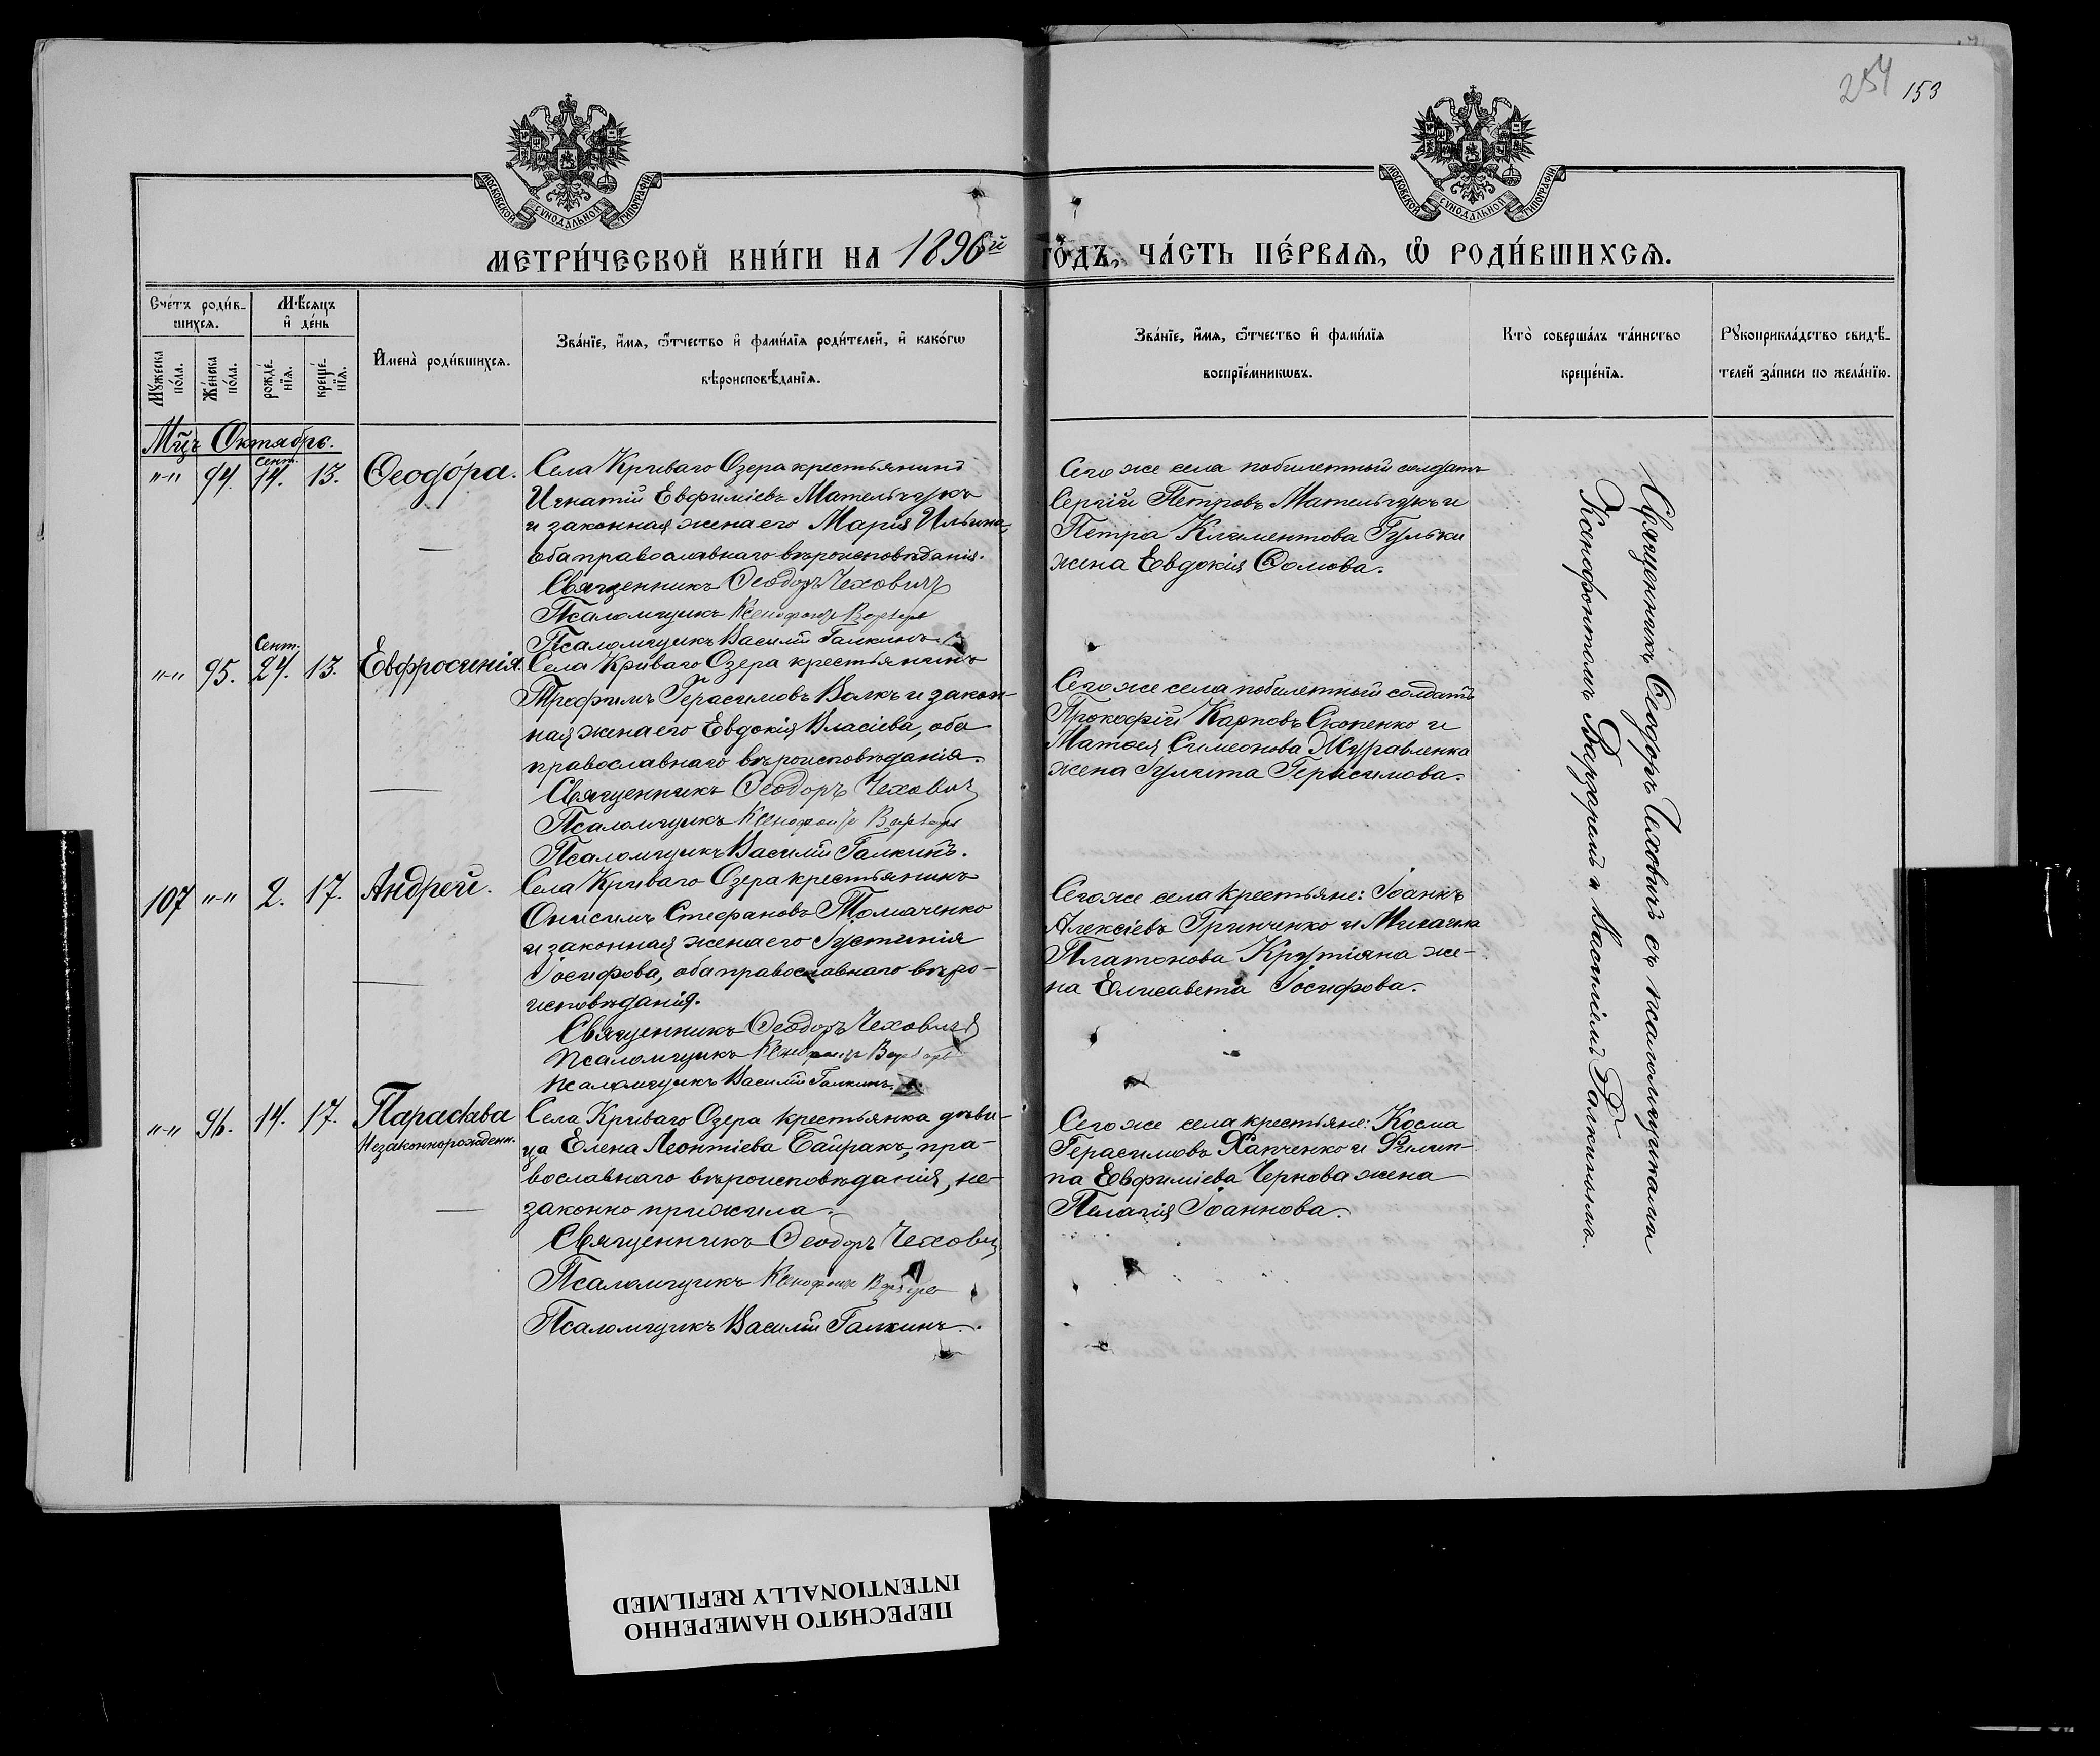 254 153
МОСКОВСКОЙ СѴНОДАЛЬНОЙ ТИПОГРАФІИ
МОСКОВСКОЙ СѴНОДАЛЬНОЙ ТИПОГРАФІИ
МЕТРИ́ЧЕСКОЙ КНИ́ГИ НА 1896й ГО́ДЪ, ЧА́СТЬ ПЕ́РВАѦ, Ѡ҆ РОДИ́ВШИХСѦ.
Сче́тъ роди́в-
шихсѧ.
Мꙋжеска по́ла.
Же́нска по́ла.
Мѣ́сѧцъ
и҆ де́нь
рожде́-
нїѧ.
креще́-
нїѧ.
И҆мена̀ роди́вшихсѧ.
Зва́нїе, и҆́мѧ, ѻ҆́тчество и҆ фами́лїѧ роди́телей, и҆ како́гѡ
вѣроисповѣ́данїѧ.
Зва́нїе, и҆́мѧ, ѻ҆́тчество и҆ фами́лїѧ
воспрїе́мникѡвъ.
Кто̀ соверша́лъ та́инство
креще́нїѧ.
Рꙋкоприкла́дство свидѣ́-
телей за́писи по жела́нїю.
Мц҃ъ Октябрь.
"-" 94. Сент. 14. 13. Ѳеодо́ра.
Села Криваго Озера крестьянинъ
Игнатій Евфиміевъ Мательчукъ
и законная жена его Марія Ильина,
оба православнаго вѣроисповѣданія.
Священникъ Ѳеодоръ Чеховичъ
Псаломщикъ Ксенофонтъ
Псаломщикъ Василій Галкинъ
Сего же села побилетный солдатъ
Сергій Петровъ Мательчукъ и
Петра Климентова Гульки
жена Евдокія Ѳомова.
"-" 95. Сент. 24. 13. Евфросинія.
Села Криваго Озера крестьянинъ
Трофимъ Герасимовъ Волкъ и закон-
ная жена его Евдокія Власіева, оба
православнаго вѣроисповѣданія.
Священникъ Ѳеодоръ Чехович
Псаломщикъ Ксенофонтъ
Псаломщикъ Василій Галкинъ.
Сего же села побилетный солдатъ
Прокофій Карповъ Скопенко и
Матѳея Симеонова Журавленка
жена Гулита Герасимова.
107 "-" 2. 17. Андрей.
Села Криваго Озера крестьянинъ
Онисимъ Стефановъ Томаченко
и законная жена его Іустинія
Іосифова, оба православнаго вѣро-
исповѣданія.
Священникъ Ѳеодоръ Чеховичъ
Псаломщикъ Ксенофонтъ
Псаломщикъ Василій Галкинъ.
Сего же села крестьяне: Іоаннъ
Алексіевъ Гринченко и Михаила
Платонова Крутіяна же-
на Елисавета Іосифова.
"-" 96. 14. 17. Параскева
Незаконнорожденн.
Села Криваго Озера крестьянка дѣви-
ца Елена Леонтіева Байракъ, пра-
вославнаго вѣроисповѣданія, не-
законно прижила.
Священникъ Ѳеодоръ Чехович
Псаломщикъ Ксенофонтъ
Псаломщикъ Василій Галкинъ.
Сего же села крестьяне: Косма
Герасимовъ Хапченко и Филип-
па Евфиміева Чернова жена
Пелагія Іоаннова.
Священникъ Ѳеодоръ Чеховичъ съ псаломщиками
Ксенофонтомъ и Василіемъ Галкиномъ.
ПЕРЕСНЯТО НАМЕРЕННО
INTENTIONALLY REFILMED